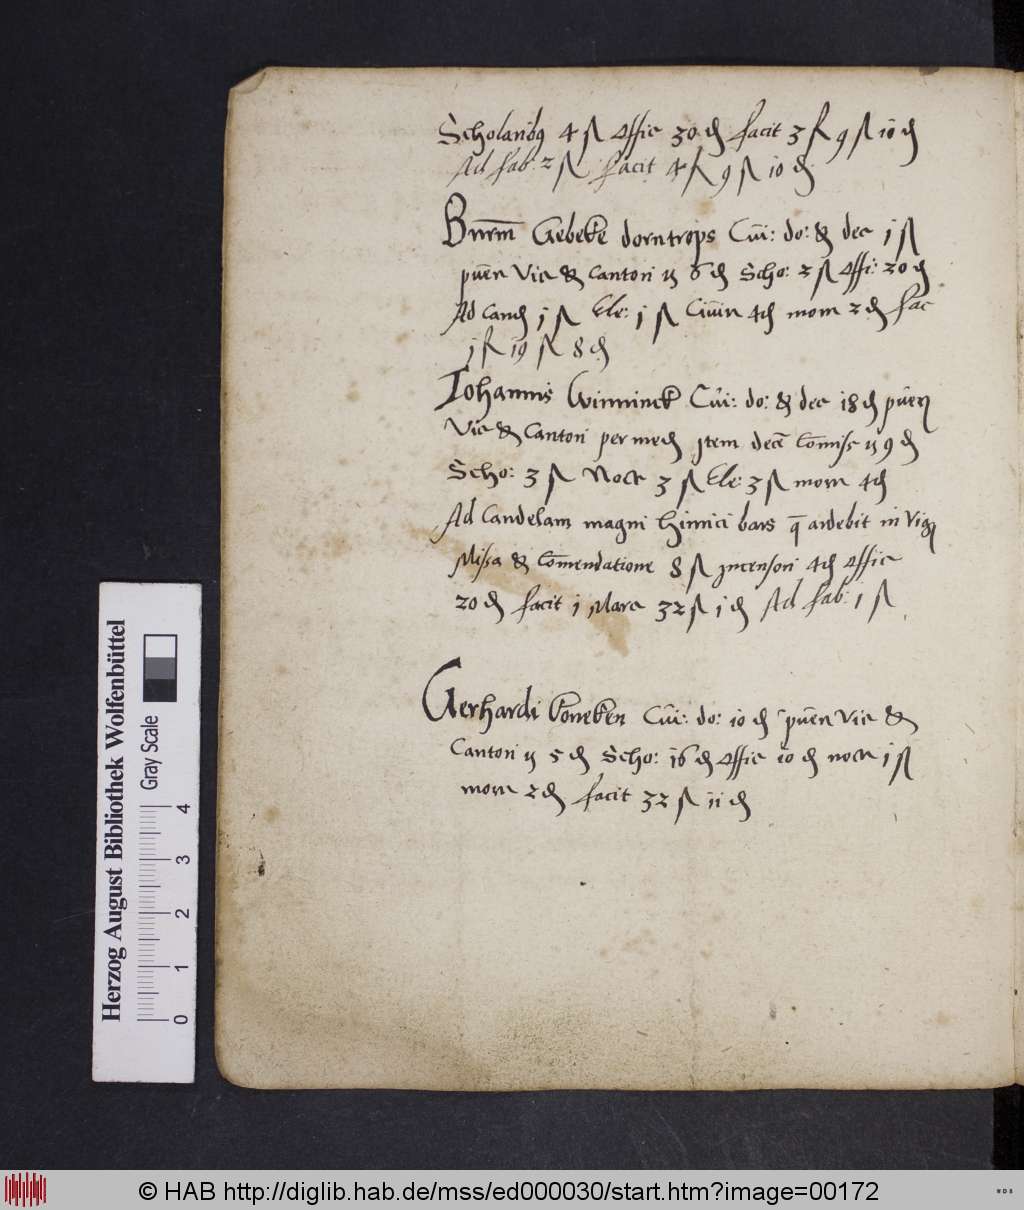 Scholaribꝯ 4 ß offic 30 ₰ facit 3 f 9 ß 10 ₰
Ad fab: 2 ß facit 4 f 9 ß 10 ₰
Gebeke dorntrops Cūi: do: & dec 1 ß
pūen vic & Cantori 6 ₰ Scho: 2 ß offi: 20 ₰
Ad Cand 1 ß Ele: 1 ß 4 ₰ mom 2 ₰ fac
1 f 19 ß 8 ₰
Iohannis Winninck Cūi: do: & dec 18 ₰ pūen
Vic & Cantori per med Item decē Comiss 9 ₰
Scho: 3 ß Noct 3 ß Ele: 3 ß mom 4 ₰
Ad Candelam magni hinrici bars q̄ ardebit in vig
Missa & Comendatione 8 ß Incensori 4 ₰ offic
20 ₰ facit 1 Marc 32 ß 1 ₰ Ad fab: 1 ß
Gerhardi Koneken Cūi: do: 10 ₰ pūen vic &
Cantori 5 ₰ Scho: 16 ₰ offic 10 ₰ noct 1 ß
mom 2 ₰ facit 32 ß 11 ₰
Herzog August Bibliothek Wolfenbüttel
Gray Scale
0 1 2 3 4
© HAB http://diglib.hab.de/mss/ed000030/start.htm?image=00172